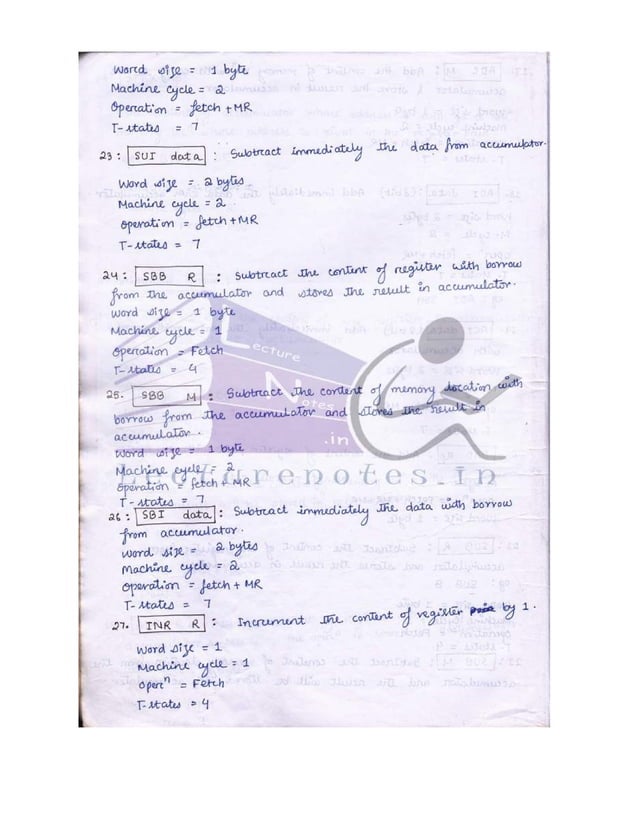 Word size = 1 byte
Machine cycle = 2
Operation = fetch + MR
T-states = 7
23: SUI data : Subtract immediately the data from accumulator.
Word size = 2 bytes
Machine cycle = 2
operation = fetch + MR
T-states = 7
24: SBB R : Subtract the content of register with borrow
from the accumulator and stores the result in accumulator.
Word size = 1 byte
Machine cycle = 1
Operation = Fetch
T-states = 4
25. SBB M : Subtract the content of memory location with
borrow from the accumulator and stores the result in
accumulator.
Word size = 1 byte
Machine cycle = 2
operation = fetch + MR
T-states = 7
26: SBI data : Subtract immediately the data with borrow
from accumulator.
Word size = 2 bytes
Machine cycle = 2
Operation = fetch + MR
T-states = 7
27. INR R : Increment the content of register by 1.
Word size = 1
Machine cycle = 1
Opern = Fetch
T-states = 4
Lecture
Notes
.in
Lecturenotes.in